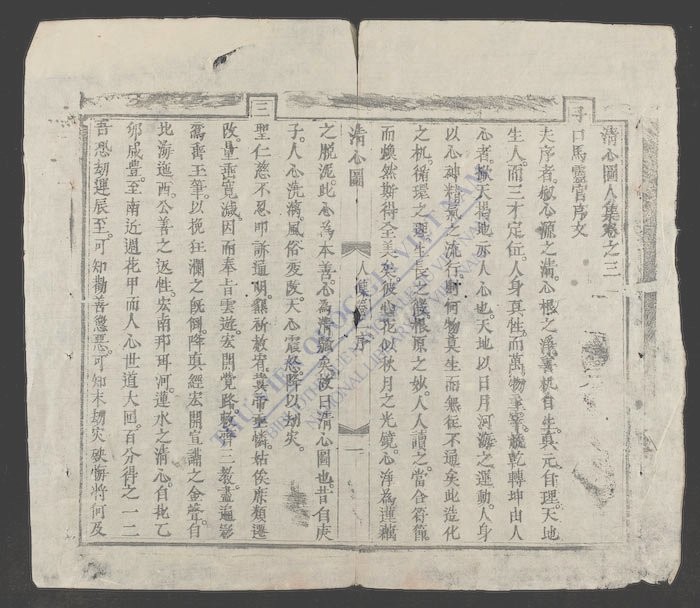 清心圖人集卷之三
馬靈官序文
夫序者
之清心根之浮善机自生真元自理天地
生人而三才定位人身真性而萬物
乾轉坤由人
心者
天揭地亦人心也天地以日月河海之運動人身
以心神精氣之流行
何物莫生而無徃不通矣此造化
之机循環之理生長之
根原之妙人人讀之當合符節
而煥然斯得全美矣彼心花似秋月之光鏡心淨為蓮藕
清心圖
人集
序
一
之脱泥此心為本善心為清
矣故曰清心圖也昔自庚
子人心洗漓風俗变改天心震怒降以劫灾
聖仁慈不忍叩訴通明
祈赦宥
帝垂憐姑俟庶類遷
改量垂寬減因而奉旨雲遊宏開覺路救濟三教盡遍影
鸞齊玉筆以挽狂瀾之既倒降真經宏開宣講之金聲自
北海迤西公善之返性宏南那珥河蓮水之清心自此乙
卯咸豊至南近週花甲而人心世道大回百分得之一二
吾恐劫運辰至可知勸善懲惡可知末劫灾殃悔將何及
子
三
THƯ VIỆN QUỐC GIA VIỆT NAM
BIBLIOTHÈQUE NATIONALE DU VIETNAM
NATIONAL LIBRARY OF VIETNAM